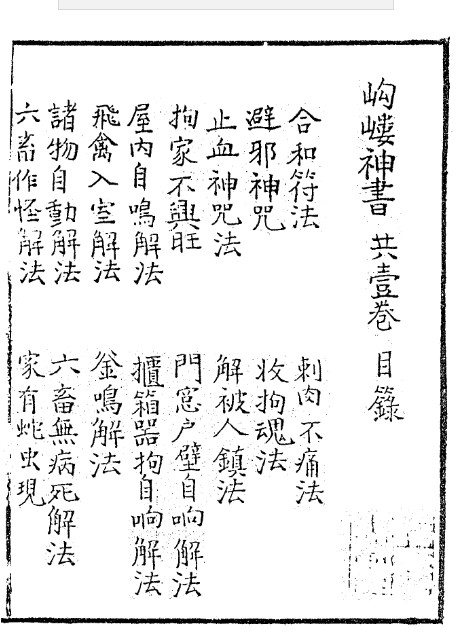 岣嶁神書 共壹卷 目錄
合和符法 刺肉不痛法
避邪神咒 收拘魂法
止血神咒法 解被人鎮法
拘家不興旺 門窓户壁自响解法
屋內自鳴解法 櫃箱器拘自响解法
飛禽入室解法 釜鳴解法
諸物自動解法 六畜無病死解法
六畜作怪解法 家有蛇虫現